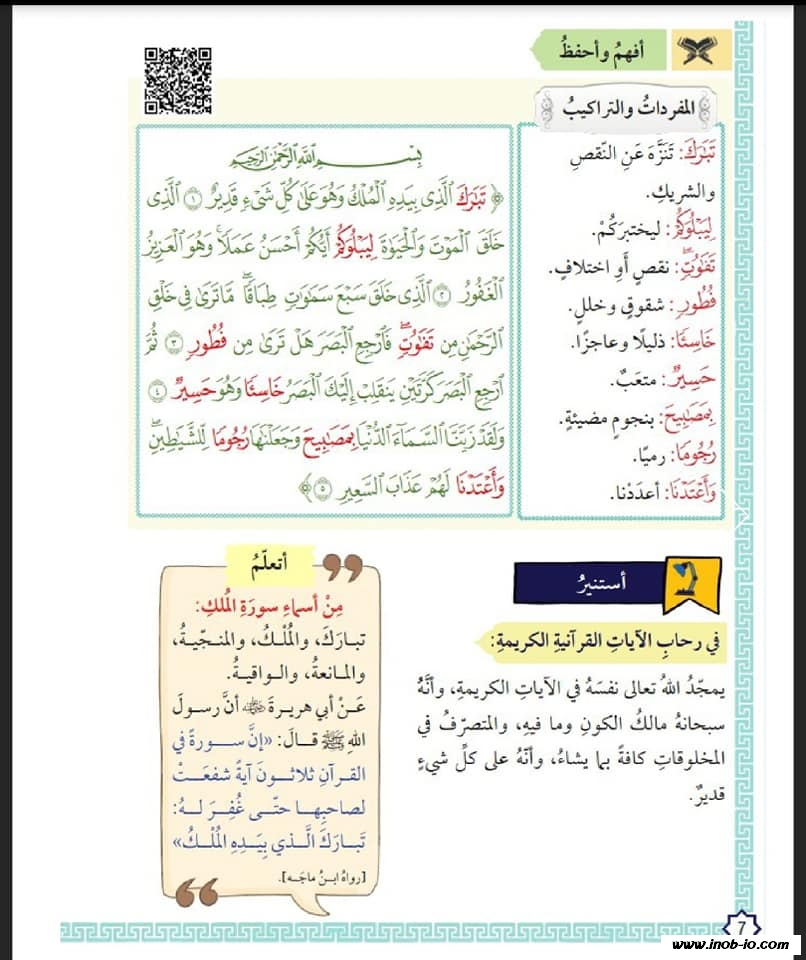 أفهمُ وأحفظُ
المفرداتُ والتراكيبُ
تَبَٰرَكَ: تَنَزَّهَ عَنِ النّقصِ
والشريكِ.
لِيَبْلُوَكُمْ: ليختبرَكُمْ.
تَفَٰوُتٖ: نقصٍ أَوِ اختلافٍ.
فُطُورٖ: شقوقٍ وخللٍ.
خَاسِئٗا: ذليلًا وعاجزًا.
حَسِيرٞ: متعَبٌ.
بِمَصَٰبِيحَ: بنجومٍ مضيئةٍ.
رُجُومٗا: رميًا.
وَأَعْتَدْنَا: أعدَدْنا.
بِسْمِ اللَّهِ الرَّحْمَٰنِ الرَّحِيمِ
﴿ تَبَٰرَكَ ٱلَّذِي بِيَدِهِ ٱلْمُلْكُ وَهُوَ عَلَىٰ كُلِّ شَيْءٖ قَدِيرٌ ١ ٱلَّذِي
خَلَقَ ٱلْمَوْتَ وَٱلْحَيَوٰةَ لِيَبْلُوَكُمْ أَيُّكُمْ أَحْسَنُ عَمَلٗاۚ وَهُوَ ٱلْعَزِيزُ
ٱلْغَفُورُ ٢ ٱلَّذِي خَلَقَ سَبْعَ سَمَٰوَٰتٖ طِبَاقٗاۖ مَّا تَرَىٰ فِي خَلْقِ
ٱلرَّحْمَٰنِ مِن تَفَٰوُتٖۖ فَٱرْجِعِ ٱلْبَصَرَ هَلْ تَرَىٰ مِن فُطُورٖ ٣ ثُمَّ
ٱرْجِعِ ٱلْبَصَرَ كَرَّتَيْنِ يَنقَلِبْ إِلَيْكَ ٱلْبَصَرُ خَاسِئٗا وَهُوَ حَسِيرٞ ٤
وَلَقَدْ زَيَّنَّا ٱلسَّمَآءَ ٱلدُّنْيَا بِمَصَٰبِيحَ وَجَعَلْنَٰهَا رُجُومٗا لِّلشَّيَٰطِينِۖ
وَأَعْتَدْنَا لَهُمْ عَذَابَ ٱلسَّعِيرِ ٥ ﴾
أستنيرُ
في رحابِ الآياتِ القرآنيةِ الكريمةِ:
يمجّدُ اللهُ تعالى نفسَهُ في الآياتِ الكريمةِ، وأنَّهُ
سبحانهُ مالكُ الكونِ وما فيهِ، والمتصرّفُ في
المخلوقاتِ كافةً بما يشاءُ، وأنّهُ على كلِّ شيءٍ
قديرٌ.
أتعلّمُ
مِنْ أسماءِ سورَةِ المُلكِ:
تبارَكَ، والمُلْكُ، والمنجّيةُ،
والمانعةُ، والواقيةُ.
عَنْ أبي هريرةَ ﷺ أنَّ رسولَ
اللهِ ﷺ قالَ: «إنَّ سورةً في
القرآنِ ثلاثونَ آيةً شفعَتْ
لصاحبِها حتّى غُفِرَ لهُ:
تَبارَكَ الَّذي بِيَدِهِ المُلْكُ»
[رواهُ ابنُ ماجَه].
7
www.inob-io.com